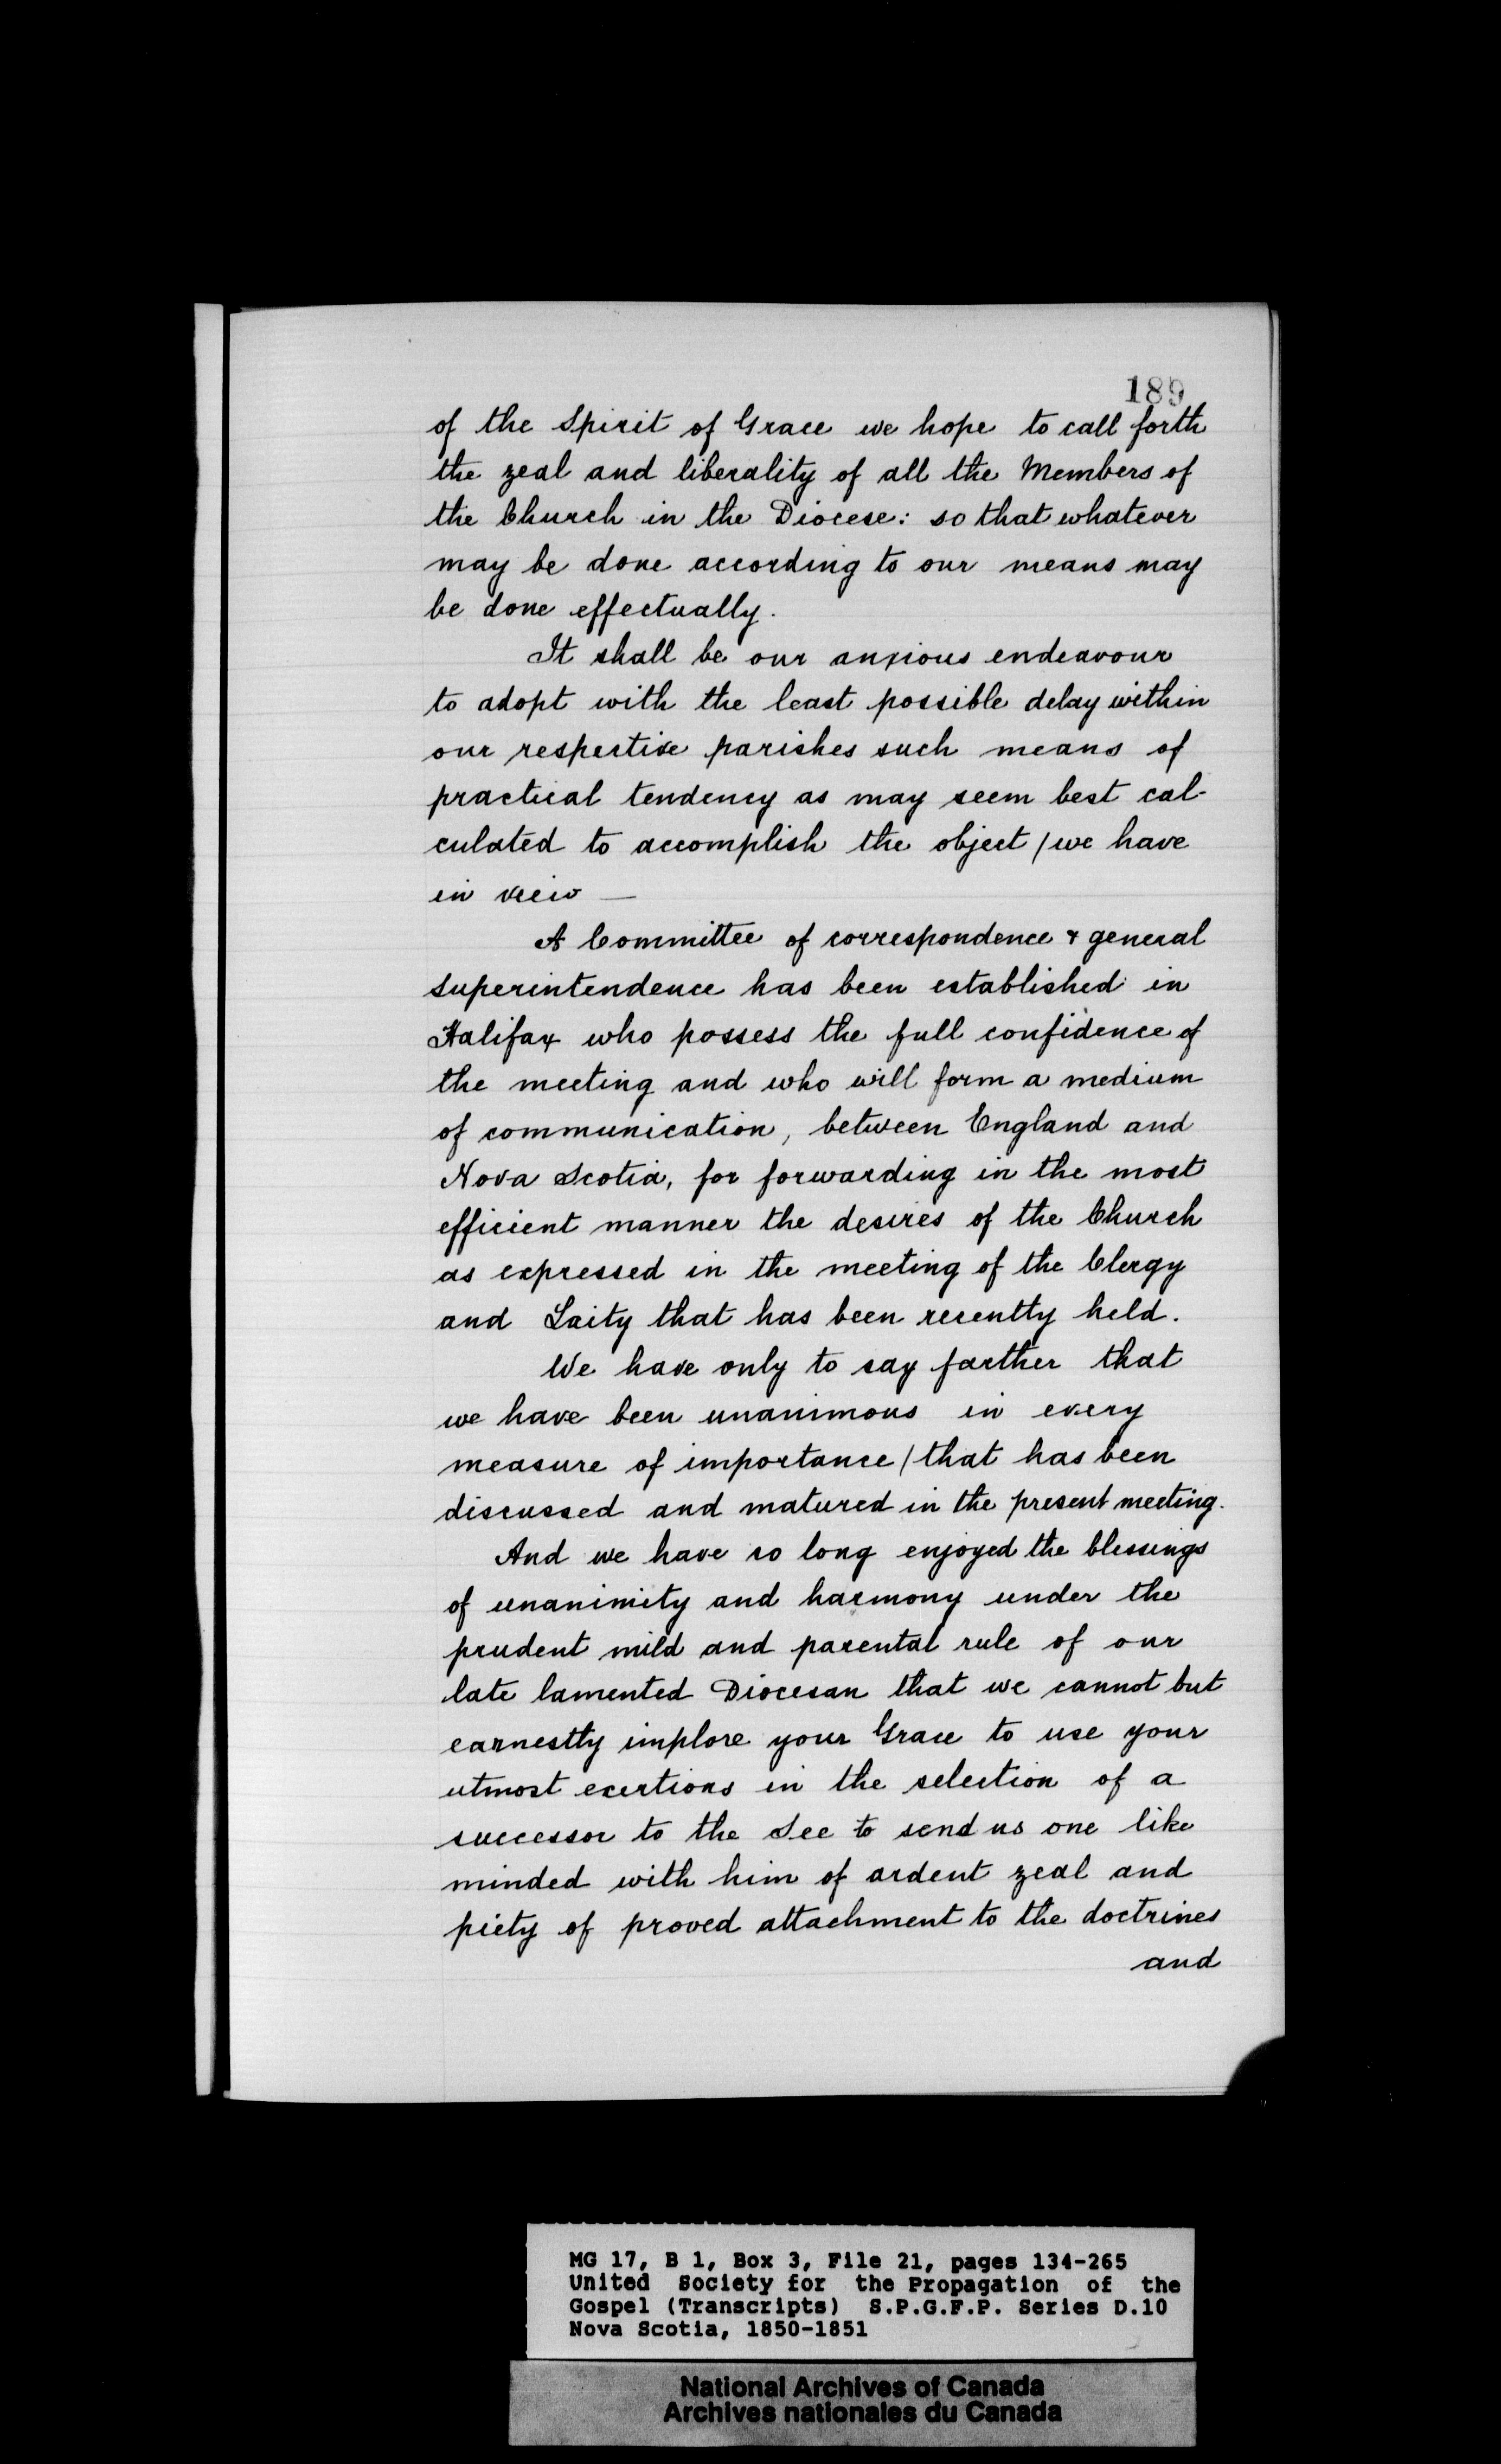 189
of the Spirit of Grace we hope to call forth
the zeal and liberality of all the Members of
the Church in the Diocese: so that whatever
may be done according to our means may
be done effectually.
It shall be our anxious endeavour
to adopt with the least possible delay within
our respective parishes such means of
practical tendency as may seem best cal-
culated to accomplish the object / we have
in view —
A Committee of correspondence & general
superintendence has been established in
Halifax who possess the full confidence of
the meeting and who will form a medium
of communication, between England and
Nova Scotia, for forwarding in the most
efficient manner the desires of the Church
as expressed in the meeting of the Clergy
and Laity that has been recently held.
We have only to say farther that
we have been unanimous in every
measure of importance / that has been
discussed and matured in the present meeting.
And we have so long enjoyed the blessings
of unanimity and harmony under the
prudent mild and parental rule of our
late lamented Diocesan that we cannot but
earnestly implore your Grace to use your
utmost exertions in the selection of a
successor to the See to send us one like
minded with him of ardent zeal and
piety of proved attachment to the doctrines
and
MG 17, B 1, Box 3, File 21, pages 134-265
United Society for the Propagation of the
Gospel (Transcripts) S.P.G.F.P. Series D.10
Nova Scotia, 1850-1851
National Archives of Canada
Archives nationales du Canada